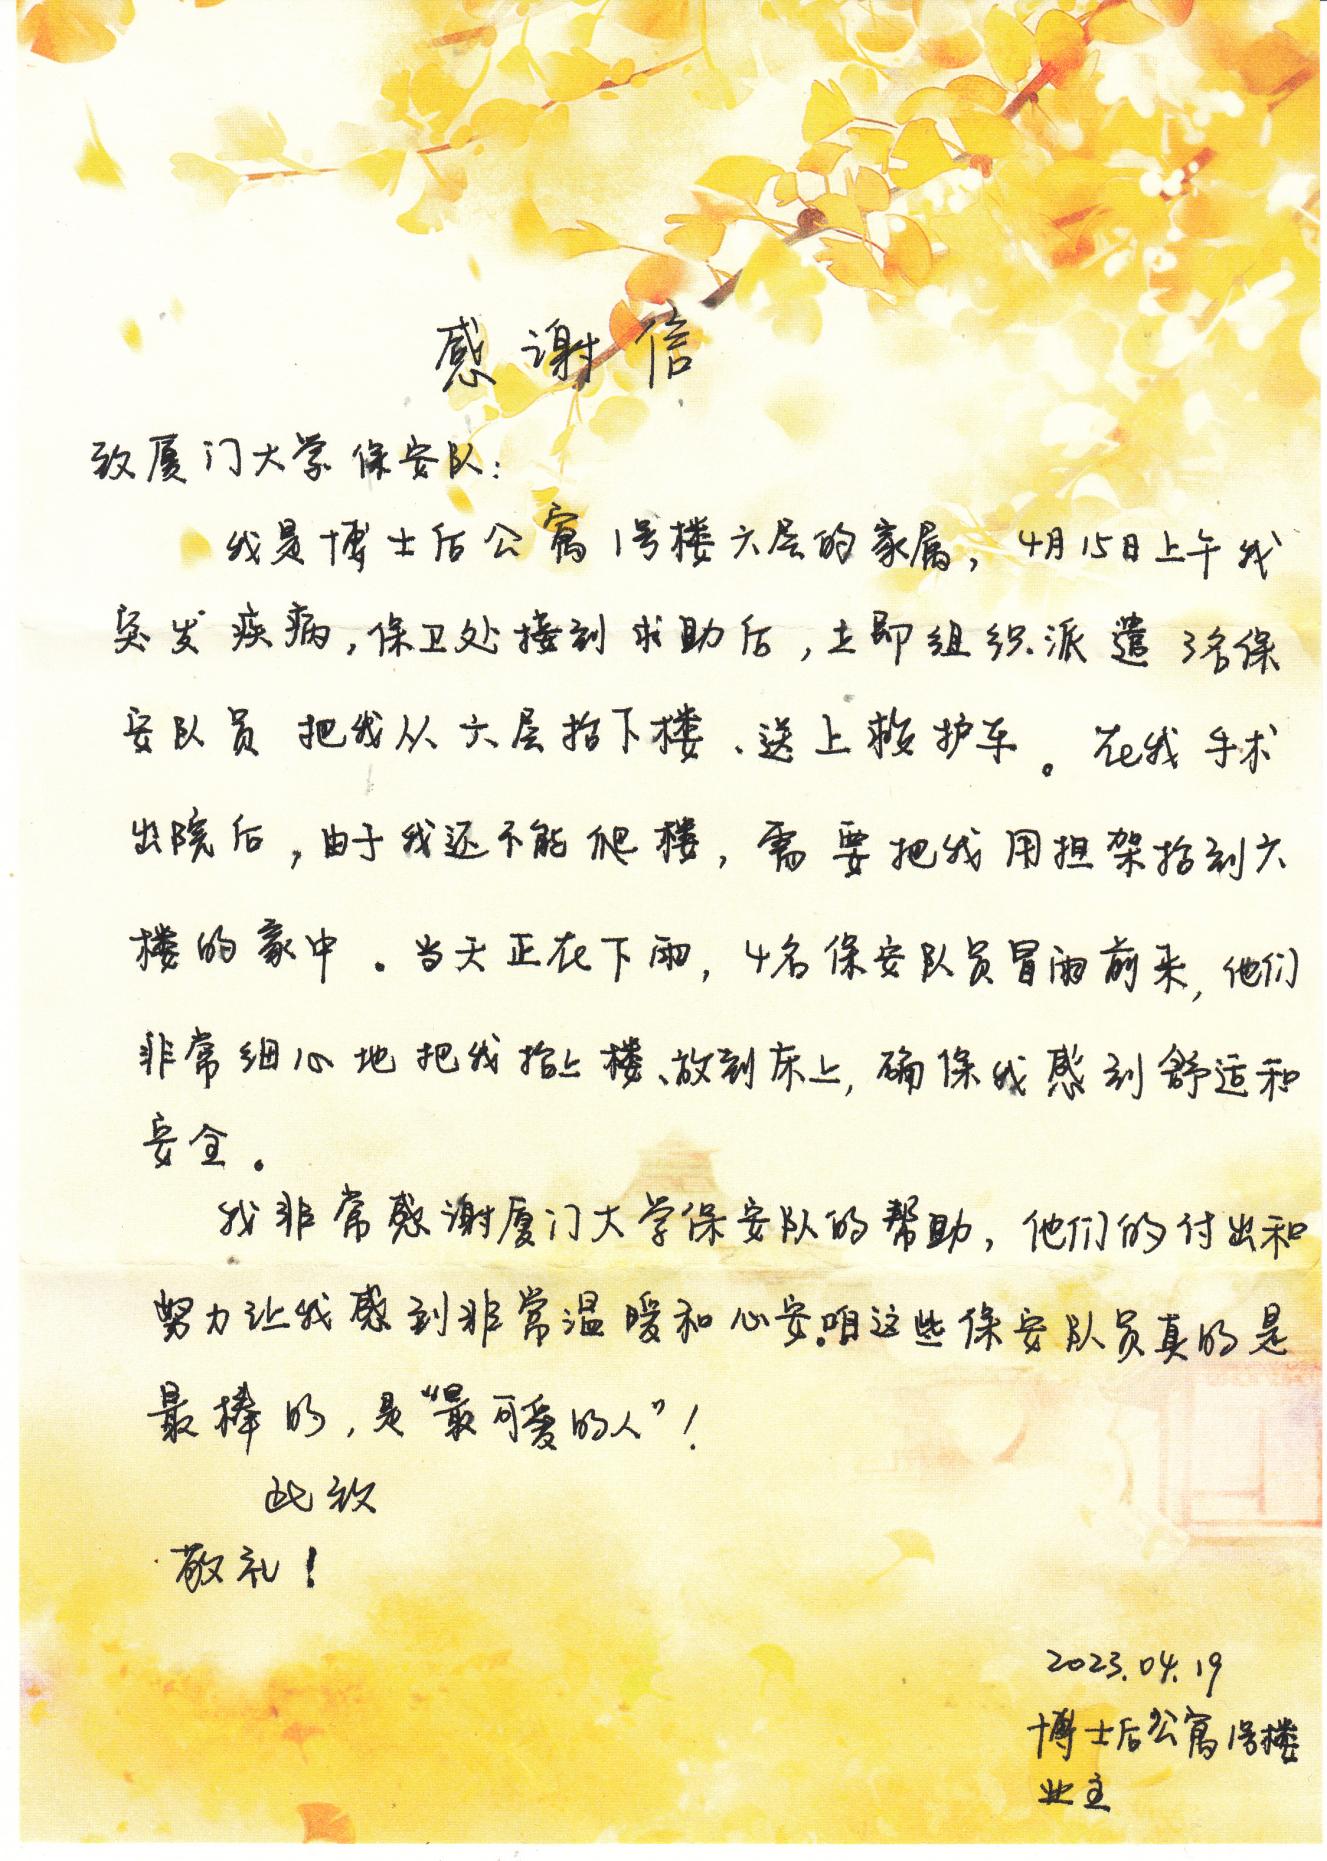 感谢信
致厦门大学保安队:
我是博士后公寓1号楼六层的家属,4月15日上午我
突发疾病,保卫处接到求助后,立即组织派遣3名保
安队员把我从六层抬下楼、送上救护车。在我手术
出院后,由于我还不能爬楼,需要把我用担架抬到六
楼的家中。当天正在下雨,4名保安队员冒雨前来,他们
非常细心地把我抬上楼、放到床上,确保我感到舒适和
安全。
我非常感谢厦门大学保安队的帮助,他们的付出和
努力让我感到非常温暖和心安。咱这些保安队员真的是
最棒的,是“最可爱的人”!
此致
敬礼!
2023.04.19
博士后公寓1号楼
业主